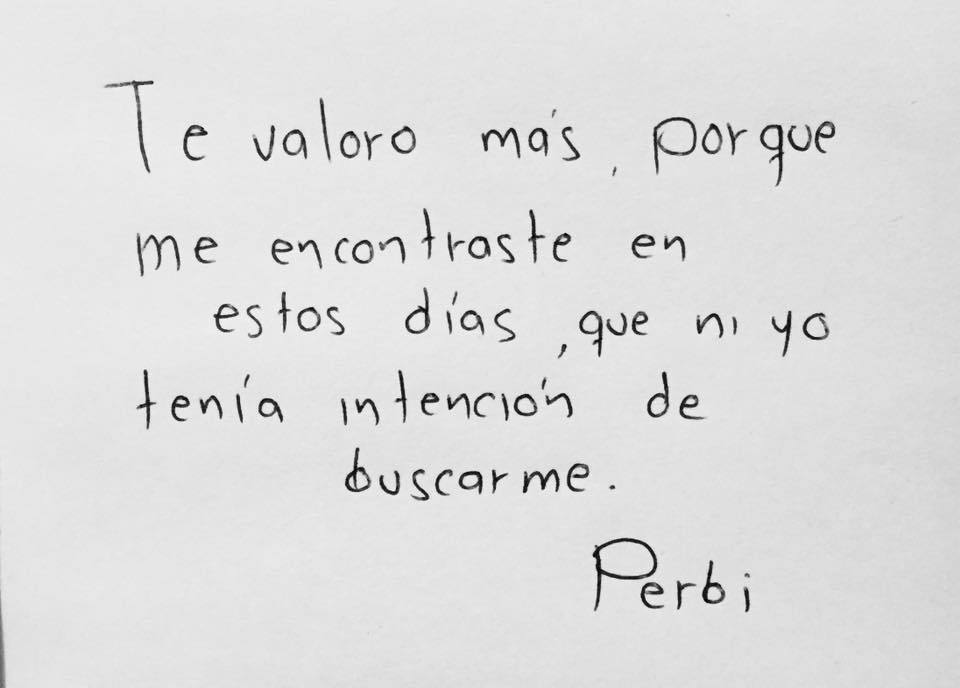 Te valoro más, porque
me encontraste en
estos días, que ni yo
tenía intención de
buscarme.
Perbi